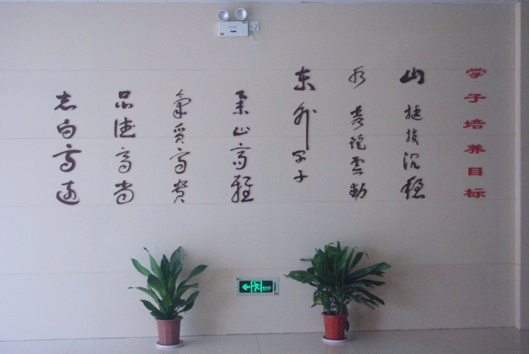 学子培养目标
山 挺拔沉稳
水 秀 灵动
东外学子
举止高雅
氣质高贵
品德高尚
志向高远